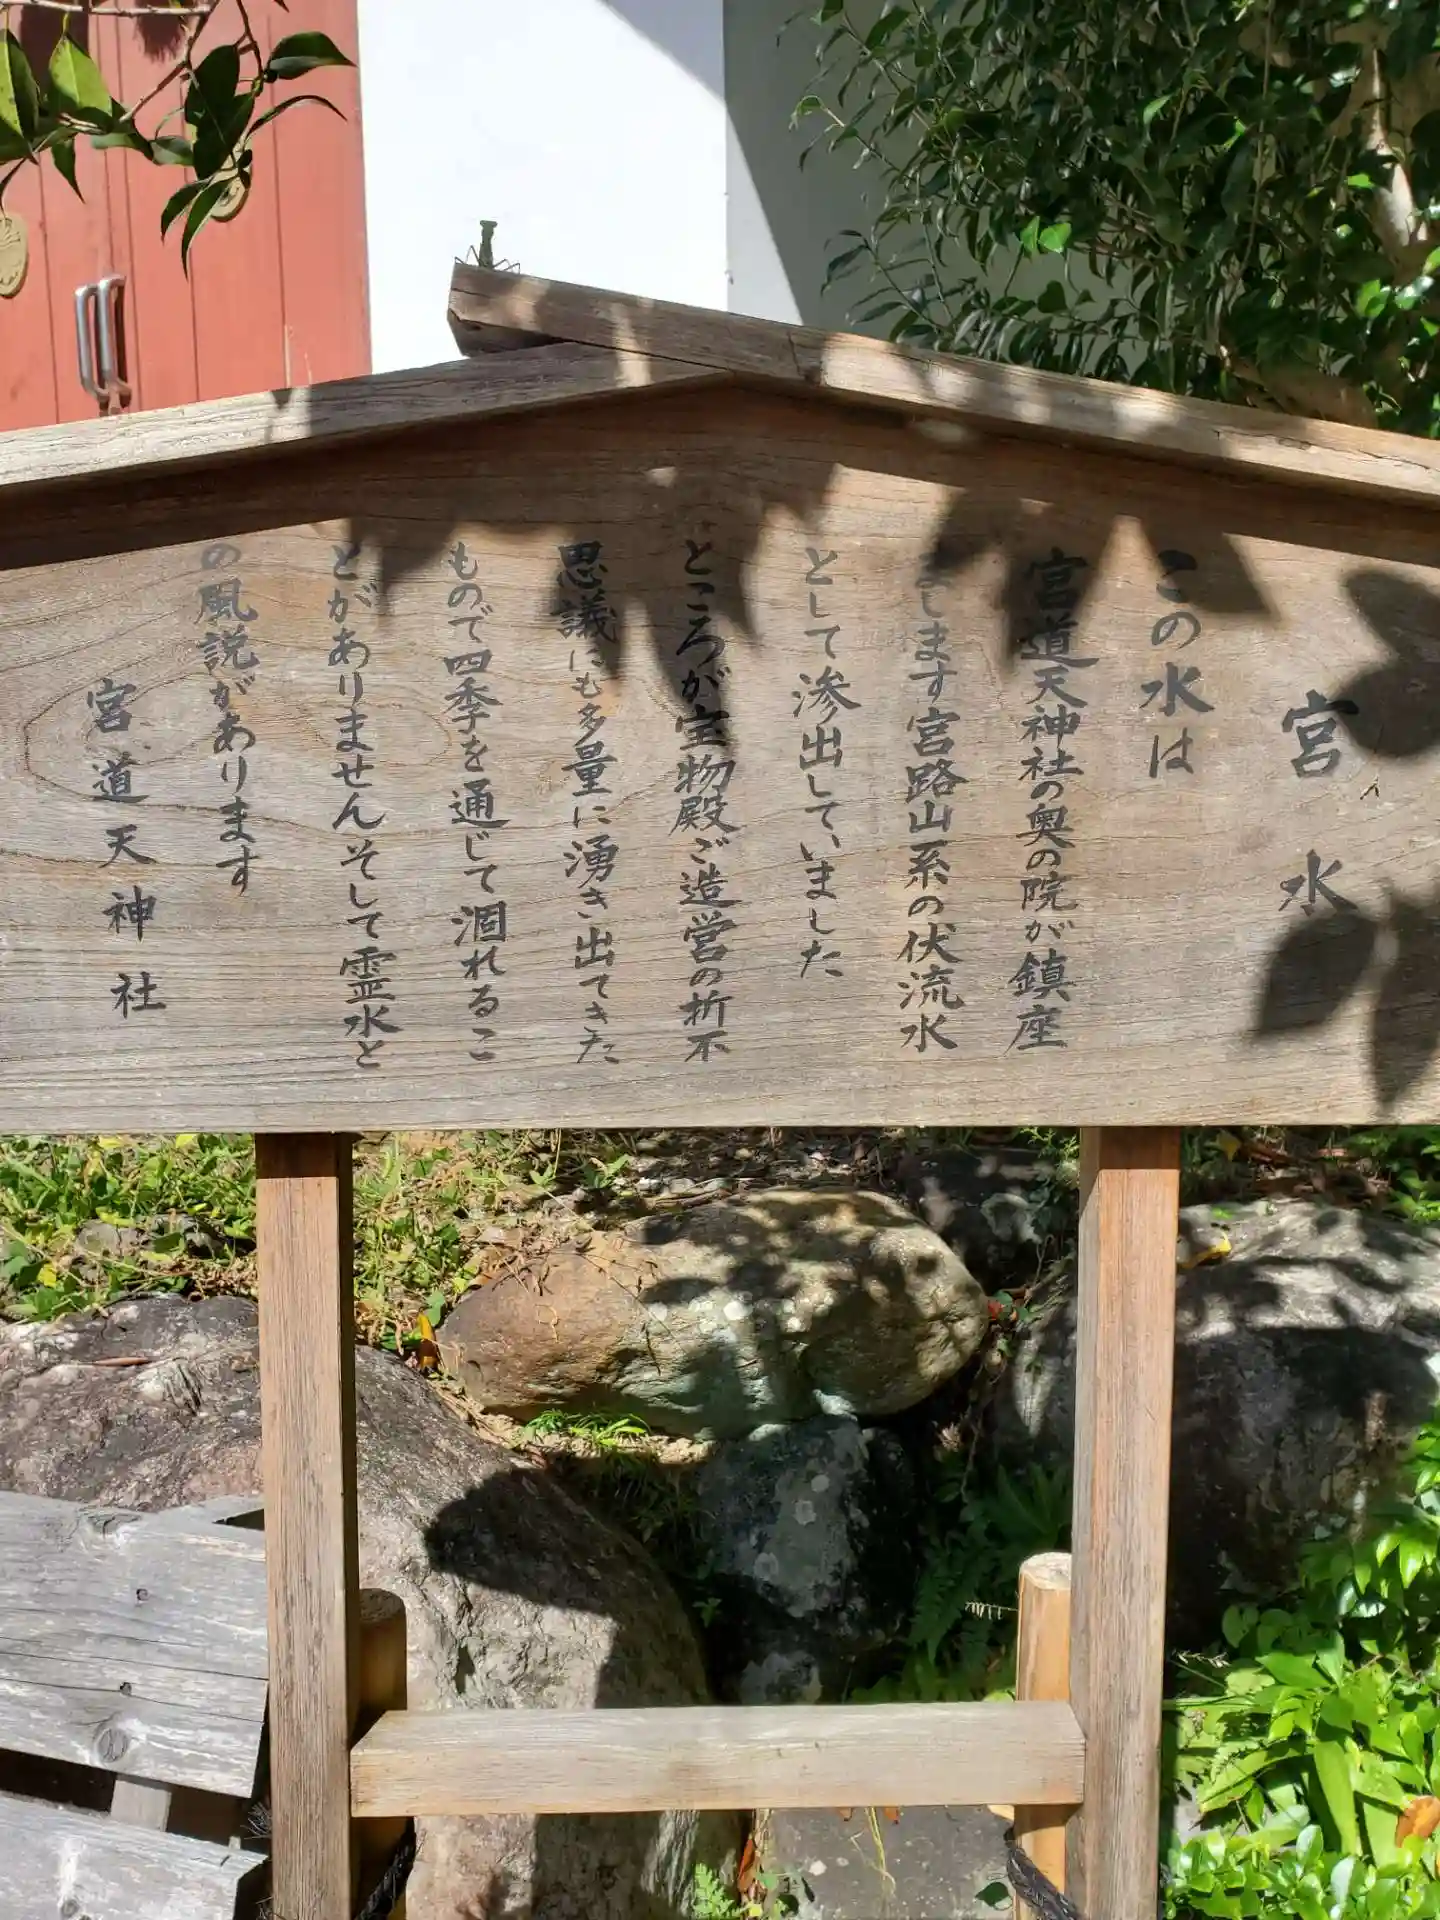 宮水
この水は
宮道天神社の奥の院が鎮座
まします宮路山系の伏流水
として滲出していました
ところが宝物殿ご造営の折不
思議にも多量に湧き出てきた
もので四季を通じて涸れるこ
とがありませんそして霊水と
の風説があります
宮道天神社